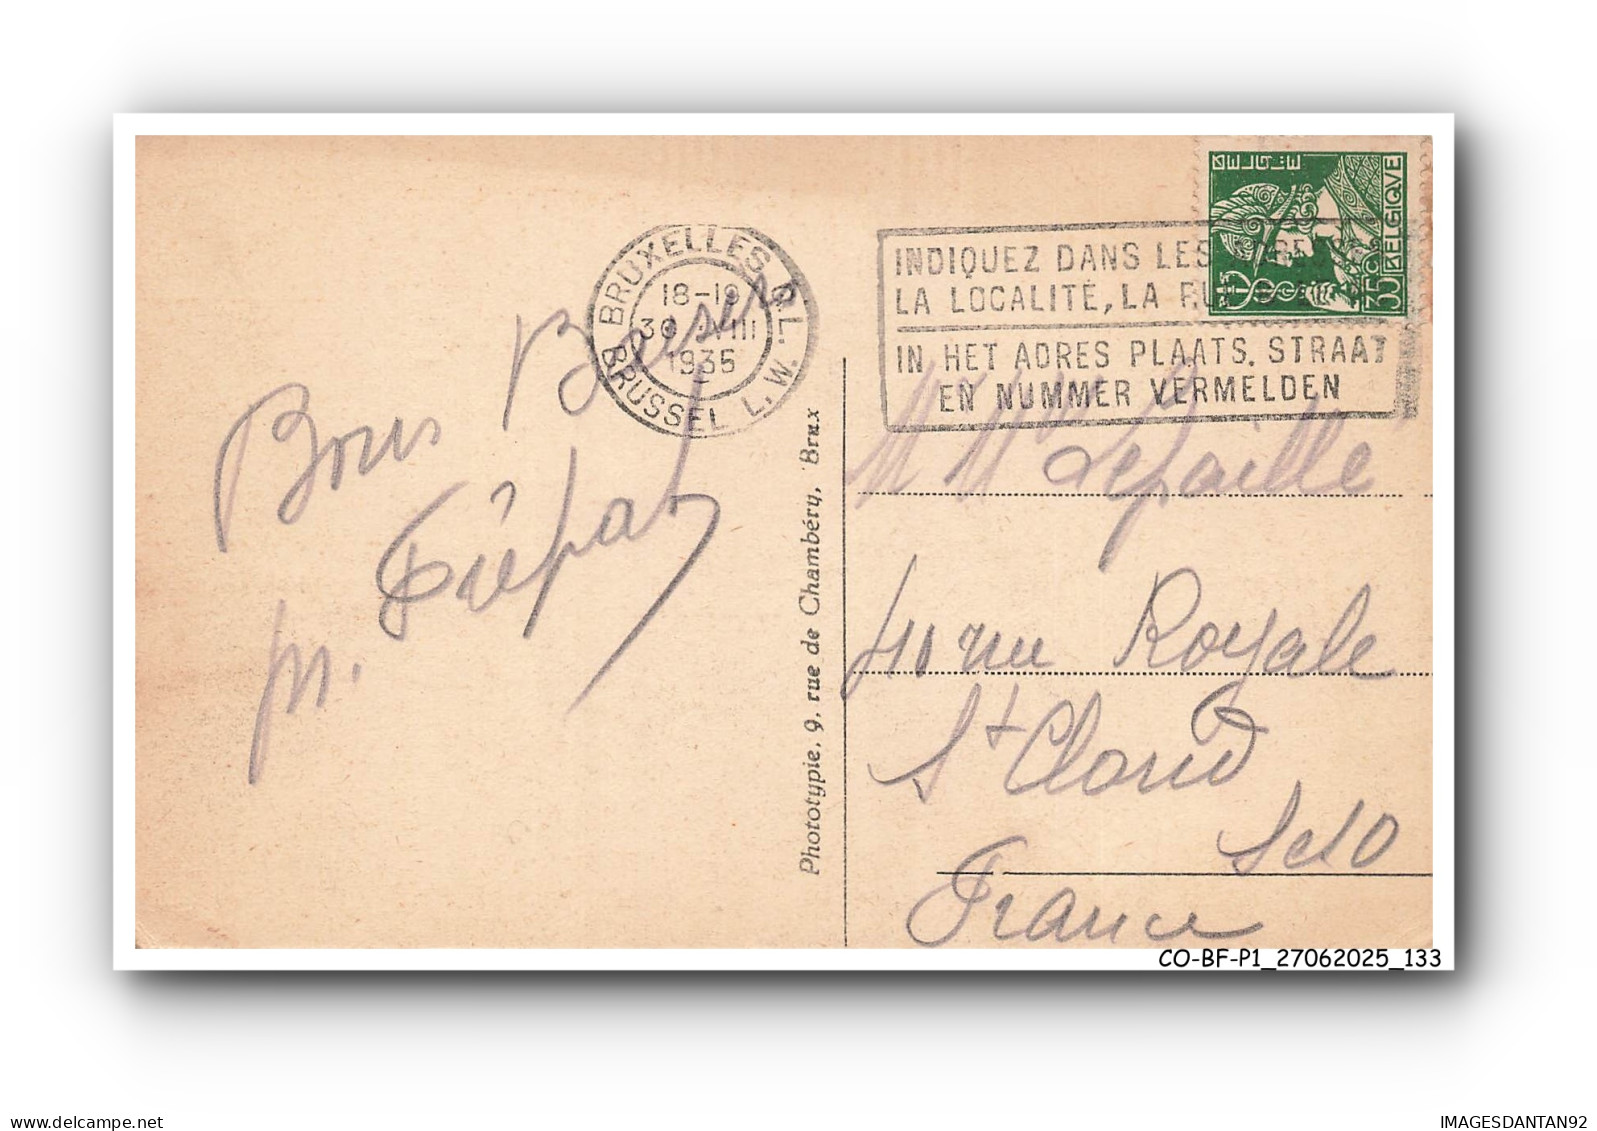 BELGIE
BELGIQVE
35
BRUXELLES Q.L.
18-19
30 VIII
1935
BRUSSEL L.W.
INDIQUEZ DANS LES
LA LOCALITÉ, LA RUE
IN HET ADRES PLAATS, STRAAT
EN NUMMER VERMELDEN
Bons Baisers
M.
Phototypie, 9, rue de Chambéry, Brux
M Mme Lepaille
41 rue Royale
St Cloud
S et O
France
CO-BF-P1_27062025_133
delcampe.net
IMAGESDANTAN92